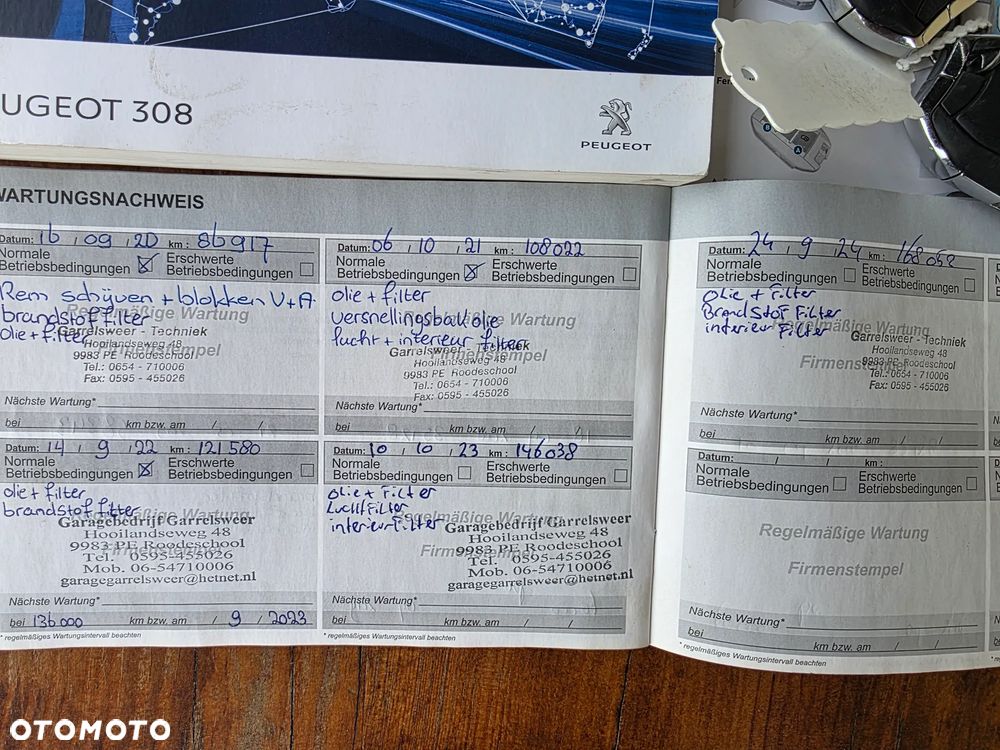 UGEOT 308
PEUGEOT
B
A
WARTUNGSNACHWEIS
Datum: 16 / 09 / 20 km: 86917
Normale Betriebsbedingungen
Erschwerte Betriebsbedingungen
Rem schijven + blokken V+A
brandstof filter
olie + filter
Regelmäßige Wartung
Garrelsweer - Techniek
Hooilandseweg 48
9983 PE Roodeschool
Firmenstempel
Tel.: 0654 - 710006
Fax: 0595 - 455026
Nächste Wartung*
bei km bzw. am / /
Datum: 06 / 10 / 21 km: 108022
Normale Betriebsbedingungen
Erschwerte Betriebsbedingungen
olie + filter
versnellingsbak olie
lucht + interieur filter
Regelmäßige Wartung
Garrelsweer - Techniek
Hooilandseweg 48
9983 PE Roodeschool
Firmenstempel
Tel.: 0654 - 710006
Fax: 0595 - 455026
Nächste Wartung*
bei km bzw. am / /
Datum: 24 / 9 / 24 km: 168052
Normale Betriebsbedingungen
Erschwerte Betriebsbedingungen
Olie + Filter
Brandstof Filter
interieur Filter
Regelmäßige Wartung
Garrelsweer - Techniek
Hooilandseweg 48
9983 PE Roodeschool
Firmenstempel
Tel.: 0654 - 710006
Fax: 0595 - 455026
Nächste Wartung*
bei km bzw. am / /
Datum: 14 / 9 / 22 km: 121580
Normale Betriebsbedingungen
Erschwerte Betriebsbedingungen
olie + filter
brandstof filter
Regelmäßige Wartung
Garagebedrijf Garrelsweer
Hooilandseweg 48
9983 PE Roodeschool
Firmenstempel
Tel. 0595-455026
Mob. 06-54710006
garagegarrelsweer@hetnet.nl
Nächste Wartung*
bei 136000 km bzw. am / 9 / 2023
* regelmäßiges Wartungsintervall beachten
Datum: 10 / 10 / 23 km: 146038
Normale Betriebsbedingungen
Erschwerte Betriebsbedingungen
Olie + Filter
Lucht Filter
interieur Filter
Regelmäßige Wartung
Garagebedrijf Garrelsweer
Hooilandseweg 48
9983 PE Roodeschool
Firmenstempel
Tel. 0595-455026
Mob. 06-54710006
garagegarrelsweer@hetnet.nl
Nächste Wartung*
bei km bzw. am / /
* regelmäßiges Wartungsintervall beachten
Datum: / / km:
Normale Betriebsbedingungen
Erschwerte Betriebsbedingungen
Regelmäßige Wartung
Firmenstempel
Nächste Wartung*
bei km bzw. am / /
* regelmäßiges Wartungsintervall beachten
OTOMOTO